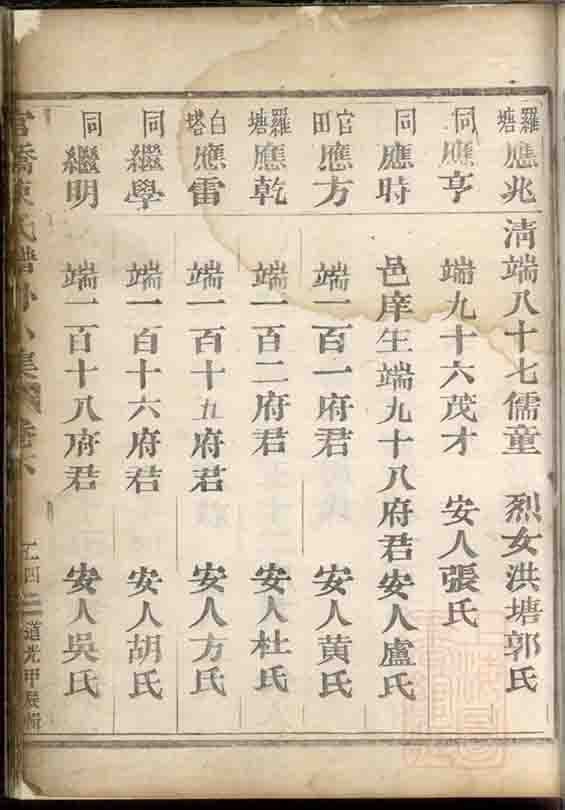 羅塘應兆 清端八十七儒童 烈女洪塘郭氏
同應亨 端九十六茂才 安人張氏
同應時 邑庠生端九十八府君安人盧氏
官田應方 端一百一府君 安人黃氏
羅塘應乾 端一百二府君 安人杜氏
白塔應雷 端一百十九府君 安人方氏
同繼學 端一百十六府君 安人胡氏
同繼明 端一百十八府君 安人吳氏
道光甲辰輯